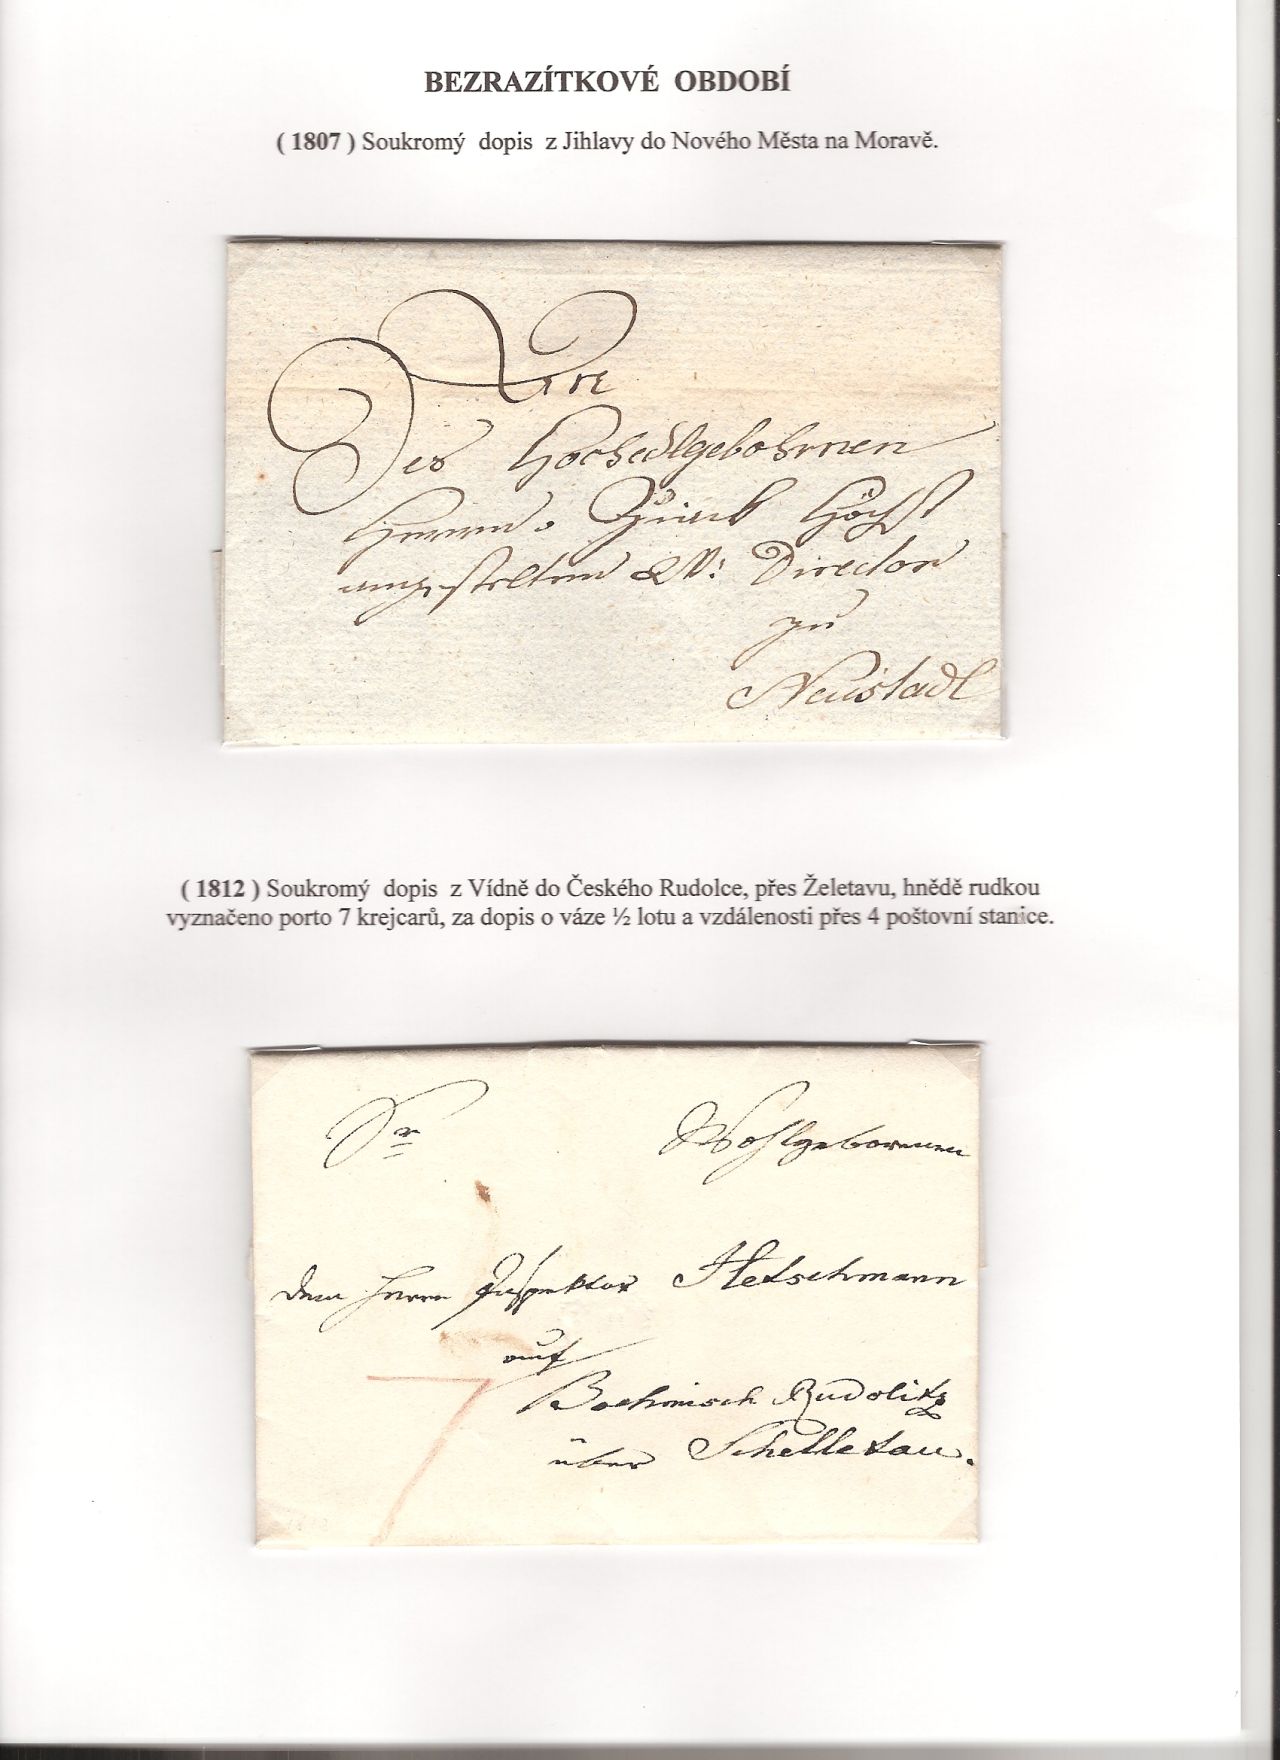 BEZRAZÍTKOVÉ OBDOBÍ
( 1807 ) Soukromý dopis z Jihlavy do Nového Města na Moravě.
Des Hochedlgebohrnen
Herrn Höchst
angestelten Director
zu
Neustadl
( 1812 ) Soukromý dopis z Vídně do Českého Rudolce, přes Želetavu, hnědě rudkou
vyznačeno porto 7 krejcarů, za dopis o váze ½ lotu a vzdálenosti přes 4 poštovní stanice.
Sr Wohlgebornen
dem Herrn Inspektor Hetschmann
auf
7
Boehmisch Rudoletz
über Schelletau.